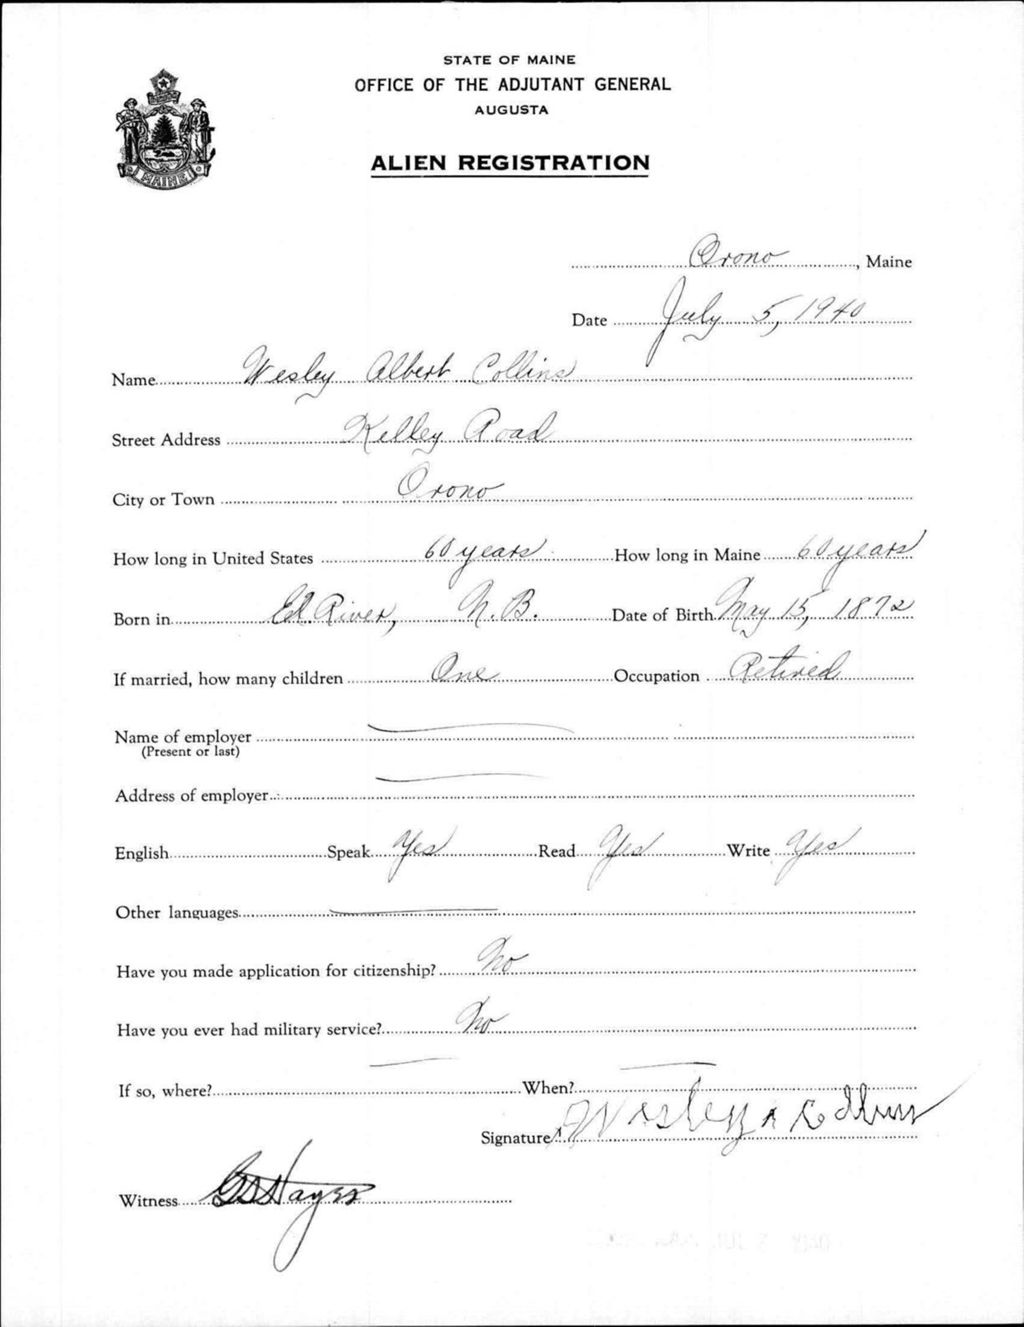 STATE OF MAINE
OFFICE OF THE ADJUTANT GENERAL
AUGUSTA
MAINE
ALIEN REGISTRATION
Orono, Maine
Date July 5, 1940
Name Wesley Albert Collins
Street Address Kelley Road
City or Town Orono
How long in United States 60 years How long in Maine 60 years
Born in Ed. River, N. B. Date of Birth May 15, 1872
If married, how many children One Occupation Retired
Name of employer
(Present or last)
Address of employer
English Speak Yes Read Yes Write Yes
Other languages
Have you made application for citizenship? No
Have you ever had military service? No
If so, where? When?
Signature Wesley A Collins
Witness Hayes